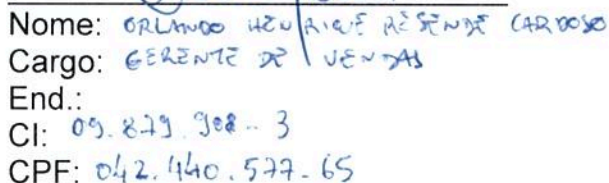 Nome: ORLANDO HENRIQUE RESENDE CARDOSO
Cargo: GERENTE DE VENDAS
End.:
CI: 09.879.908-3
CPF: 042.440.577-65